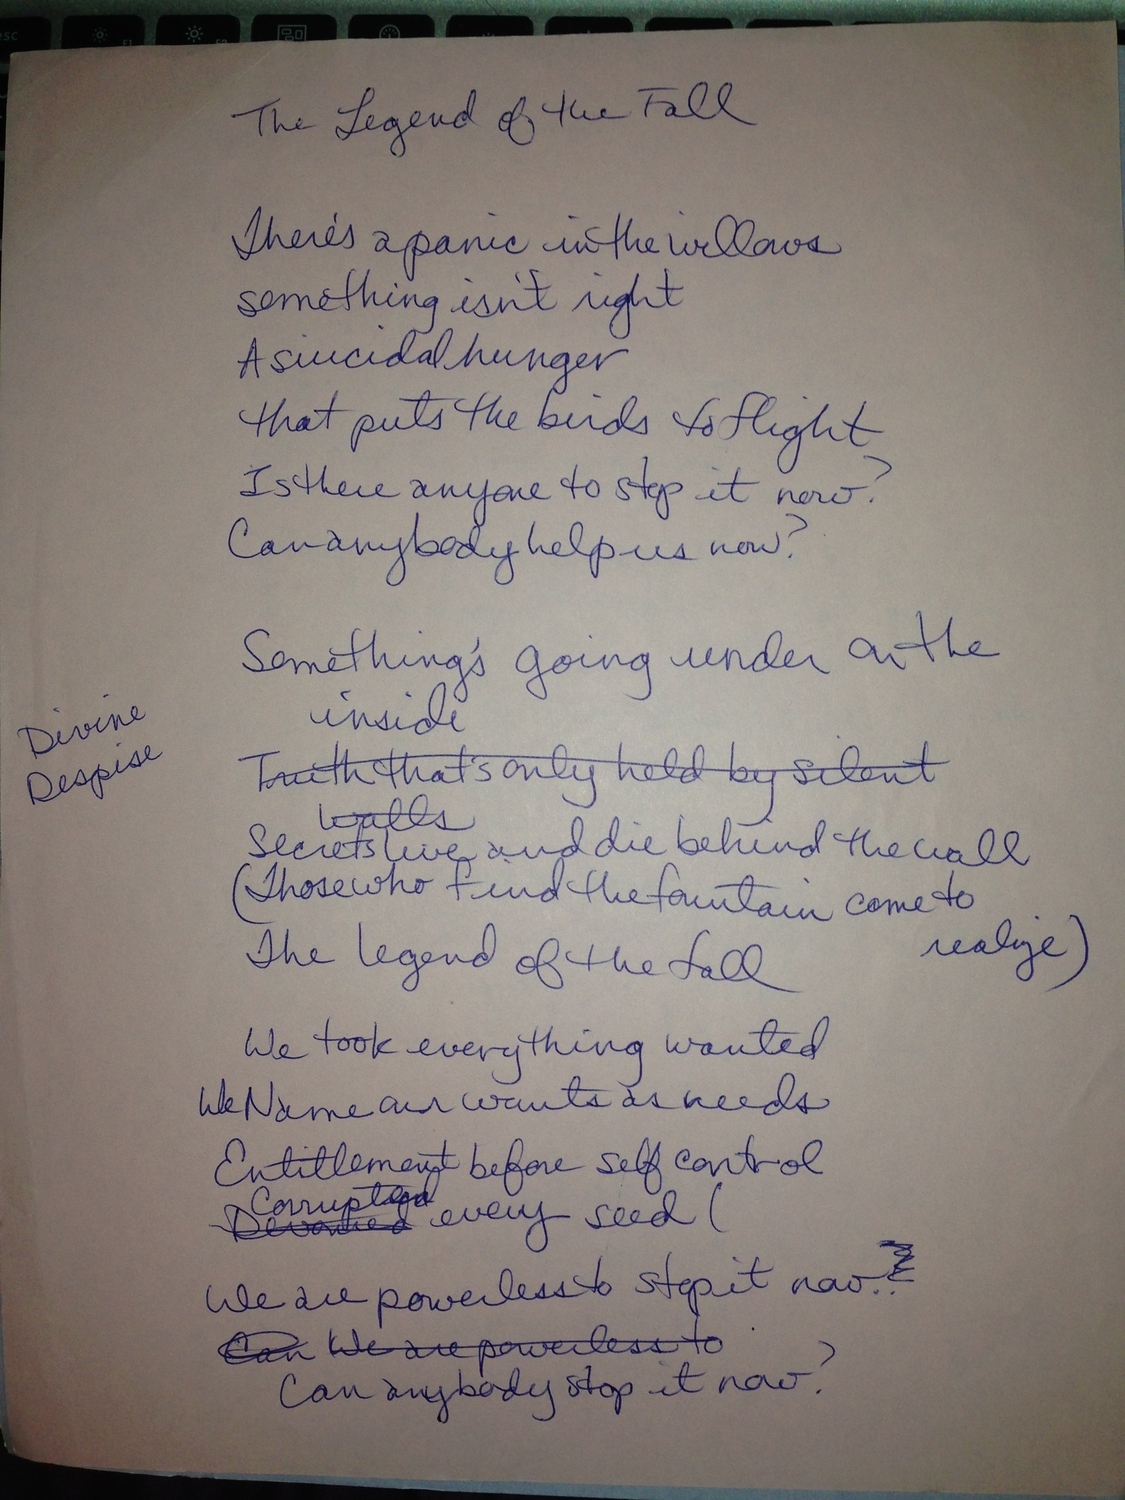 The Legend of the Fall
There's a panic in the willows
something isn't right
A siucidal hunger
that puts the birds to flight
Is there anyone to stop it now?
Can anybody help us now?
Something's going under on the
inside
Divine
Despise
Truth that's only held by silent
walls
Secrets live and die behind the wall
(Those who find the fountain come to
realize)
The legend of the fall
We took everything wanted
We Name our wants as needs
Entitlement before self control
Corrupted
Devoured every seed (
We are powerless to stop it now..
Can We are powerless to
Can anybody stop it now?